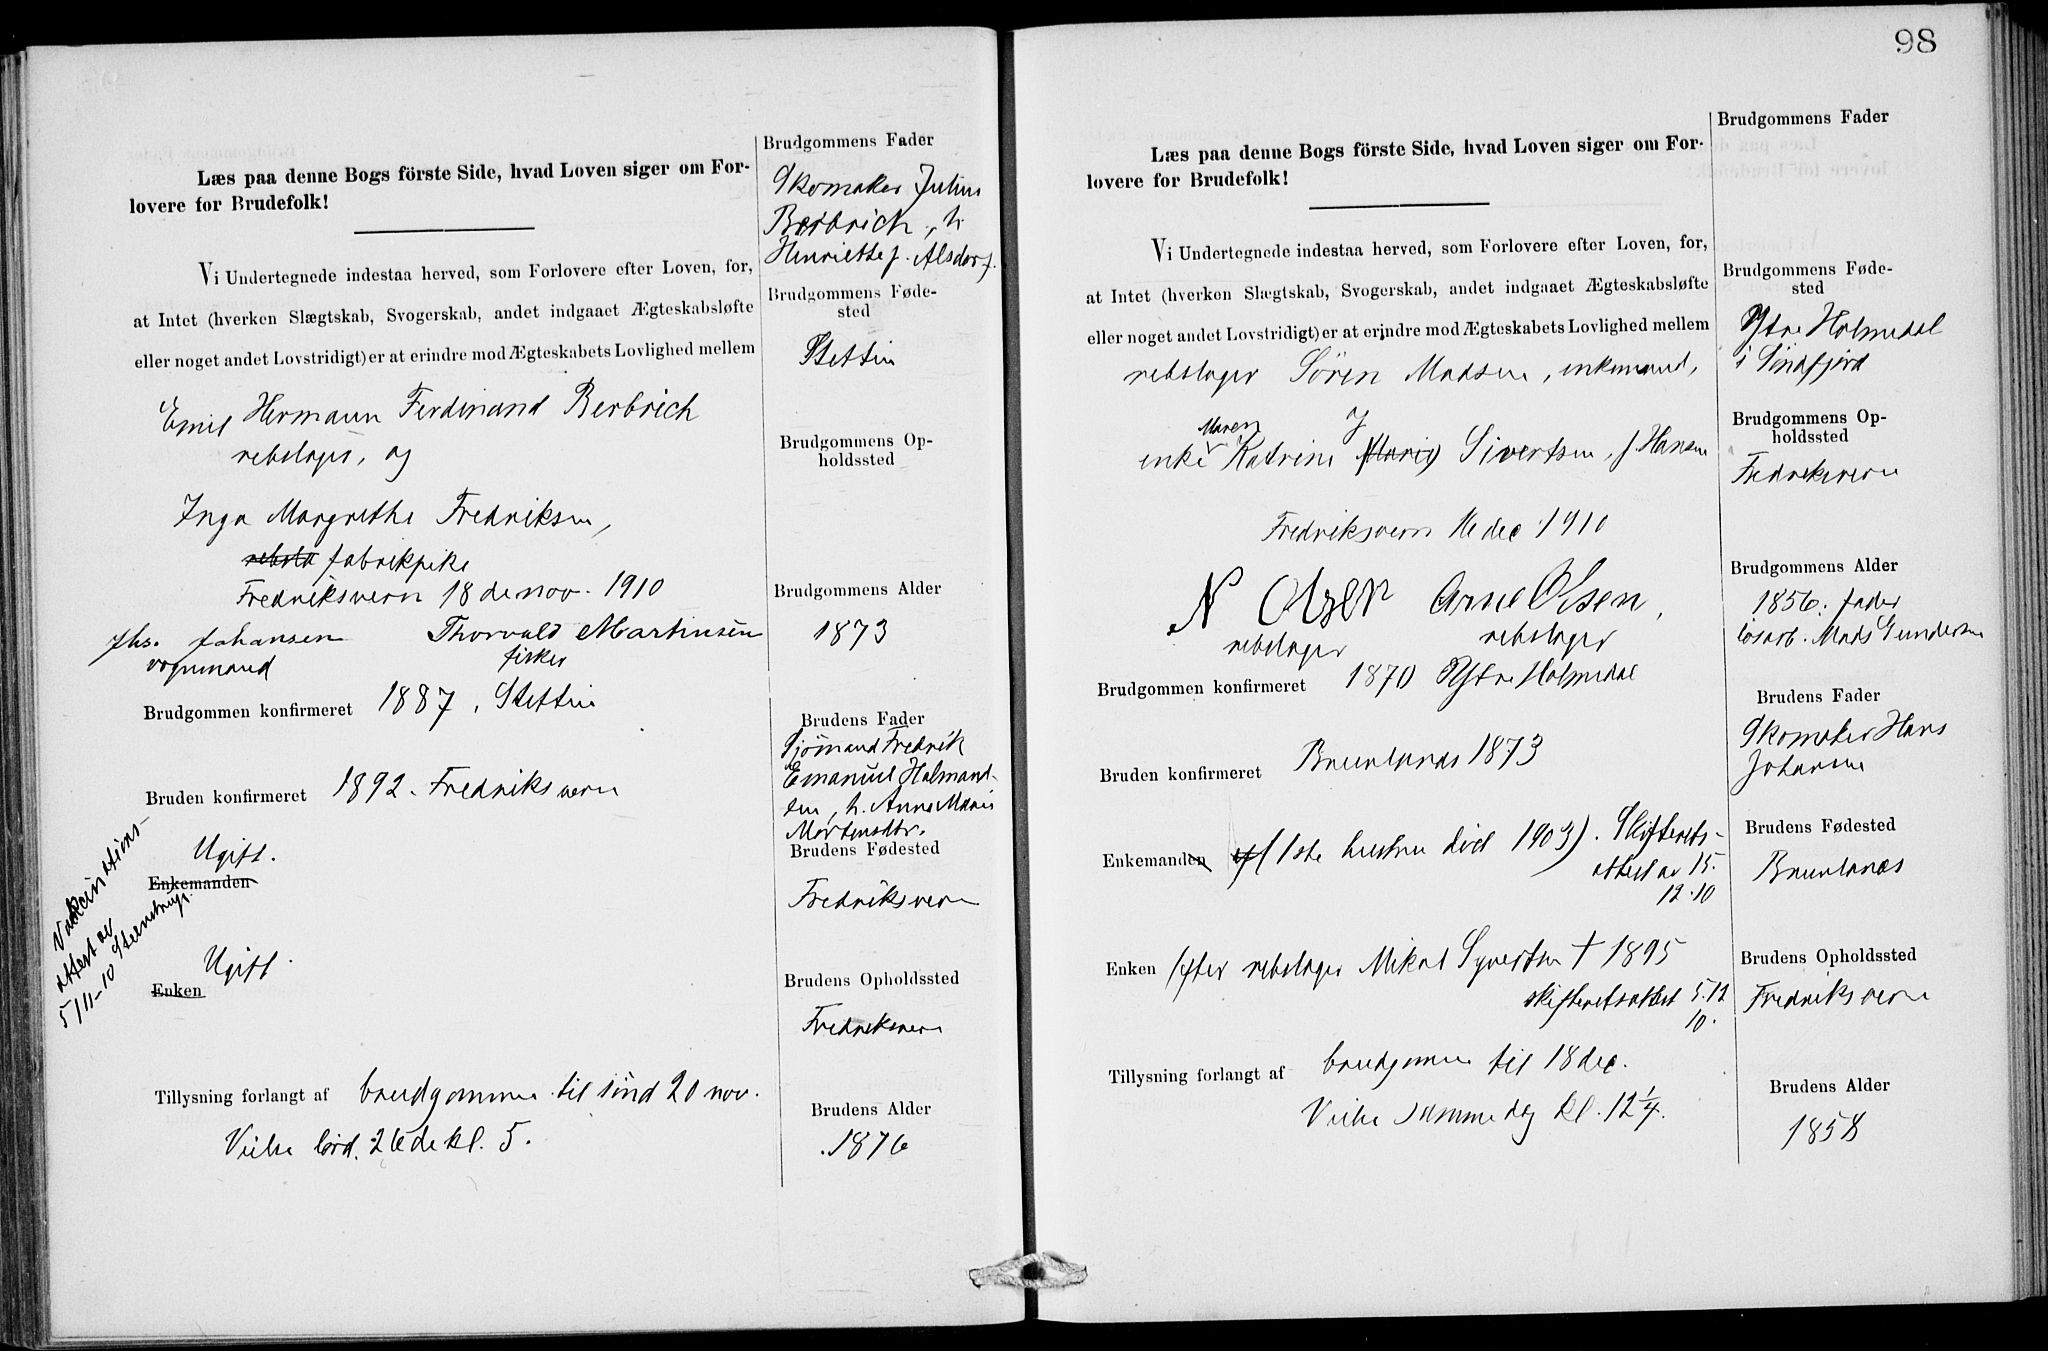 Læs paa denne Bogs förste Side, hvad Loven siger om For-
lovere for Brudefolk!
Vi Undertegnede indestaa herved, som Forlovere efter Loven, for,
at Intet (hverken Slægtskab, Svogerskab, andet indgaaet Ægteskabsløfte
eller noget andet Lovstridigt) er at erindre mod Ægteskabets Lovlighed mellem
Emil Hermann Ferdinand Berbrich
rebslager, og
Inga Margrethe Fredriksen,
rebsla fabrikpike
Fredriksvern 18de nov. 1910
Jhs. Johansen Thorvald Martinsen
vognmand fisker
Brudgommen konfirmeret 1887, Stettin
Bruden konfirmeret 1892. Fredriksvern
Ugift.
Enkemanden
Ugift.
Enken
Vakcinations-
attest av
5/11-10
Tillysning forlangt af brudgommen til sönd 20 nov.
Vielse lörd. 26de kl. 5.
Brudgommens Fader
Skomaker Julius
Berbrich, h.
Henriette f. Alsdorf.
Brudgommens Føde-
sted
Stettin
Brudgommens Op-
holdssted
Brudgommens Alder
1873
Brudens Fader
Sjömand Fredrik
Emanuel Halmand-
len, h. Anne Marie
Mortensdtr.
Brudens Fødested
Fredriksvern
Brudens Opholdssted
Fredriksvern
Brudens Alder
1876
98
Læs paa denne Bogs förste Side, hvad Loven siger om For-
lovere for Brudefolk!
Vi Undertegnede indestaa herved, som Forlovere efter Loven, for,
at Intet (hverken Slægtskab, Svogerskab, andet indgaaet Ægteskabsløfte
eller noget andet Lovstridigt) er at erindre mod Ægteskabets Lovlighed mellem
rebslager Sören Madsen, enkemand,
Maren
enke Katrine (Marie) Sivertsen, f. Hansen
Fredriksvern 16 dec 1910
N Olsen Arne Olsen,
rebslager rebslager
Brudgommen konfirmeret 1870 Ytre Holmedal
Bruden konfirmeret Brunlanæs 1873
Enkemanden ef (1ste hustru död 1903). Skifterets-
attest av 15.
12.10
Enken efter rebslager Mikal Syvertsen † 1895
skifteretsattest 5.12
10.
Tillysning forlangt af brudgommen til 18 dec.
Vielse samme dag kl. 12 1/4.
Brudgommens Fader
Brudgommens Føde-
sted
Ytre Holmedal
i Söndfjord
Brudgommens Op-
holdssted
Fredriksvern
Brudgommens Alder
1856. fader
lösarb. Mads Gundersen
Brudens Fader
Skomaker Hans
Johansen
Brudens Fødested
Brunlanæs
Brudens Opholdssted
Fredriksvern
Brudens Alder
1858